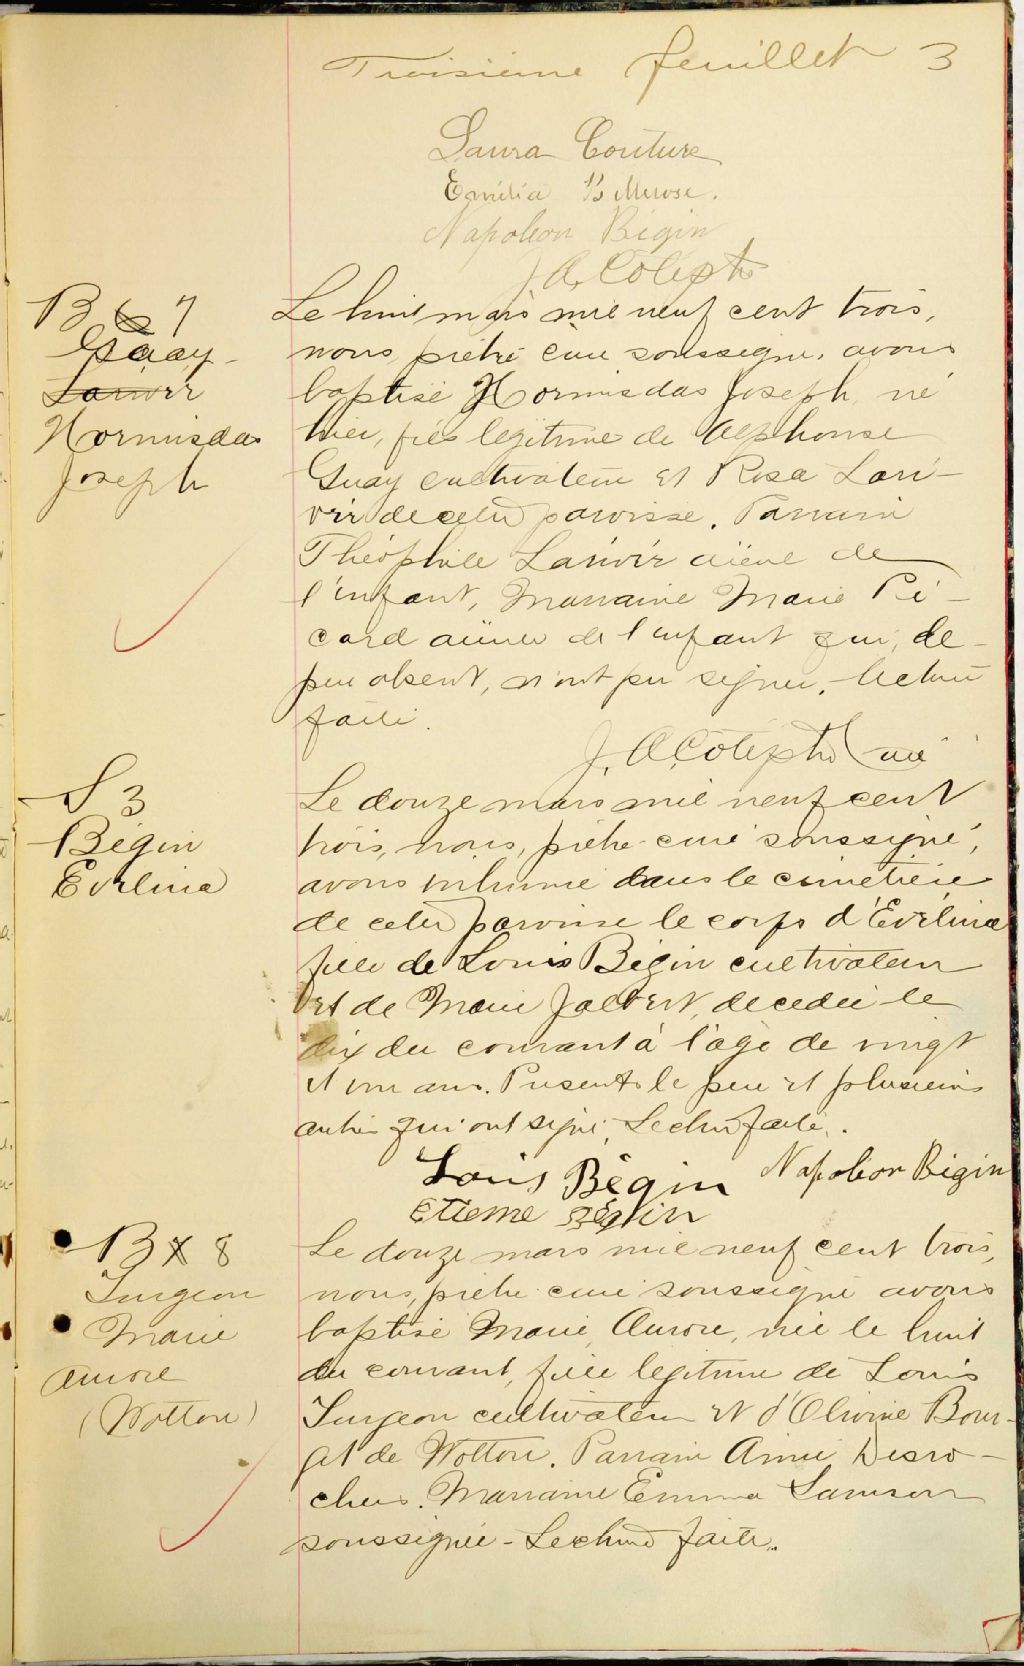 Troisieme feuillet 3
Laura Couture
Emilia
Napoleon Bégin
J. A.
B 7
Guay
Larivir
Hormisdas
Joseph
Le huit mars mil neuf cent trois,
nous, prêtre curé soussigné, avons
baptisé Hormisdas Joseph, né
hier, fils légitime de Alphonse
Guay cultivateur et Rosa Lari-
vir de cette paroisse. Parrain
Théophile Larivir aieul de
l'enfant, Marraine Marie Pi-
card aieule de l'enfant qui, de
peu absent, n'ont pu signer. Lecture
faite.
J. A. curé
S 3
Bégin
Evelina
Le douze mars mil neuf cent
trois, nous, prêtre curé soussigné,
avons inhumé dans le cimetière
de cette paroisse le corps d'Evelina
fille de Louis Bégin cultivateur
et de Marie Jalbert, decedée le
dix du courant à l'âge de vingt
et un ans. Présents le père et plusieurs
autres qui ont signé. Lecture faite.
Louis Bégin Napoleon Bégin
Etienne Bégin
B 8
Turgeon
Marie
Aurore
(Wotton)
Le douze mars mil neuf cent trois,
nous, prêtre curé soussigné avons
baptisé Marie, Aurore, née le huit
du courant, fille legitime de Louis
Turgeon cultivateur et d'Olivine Bour-
get de Wotton. Parrain Aimé Desro-
chers. Marraine Emma Samson
soussignée - Lecture faite.